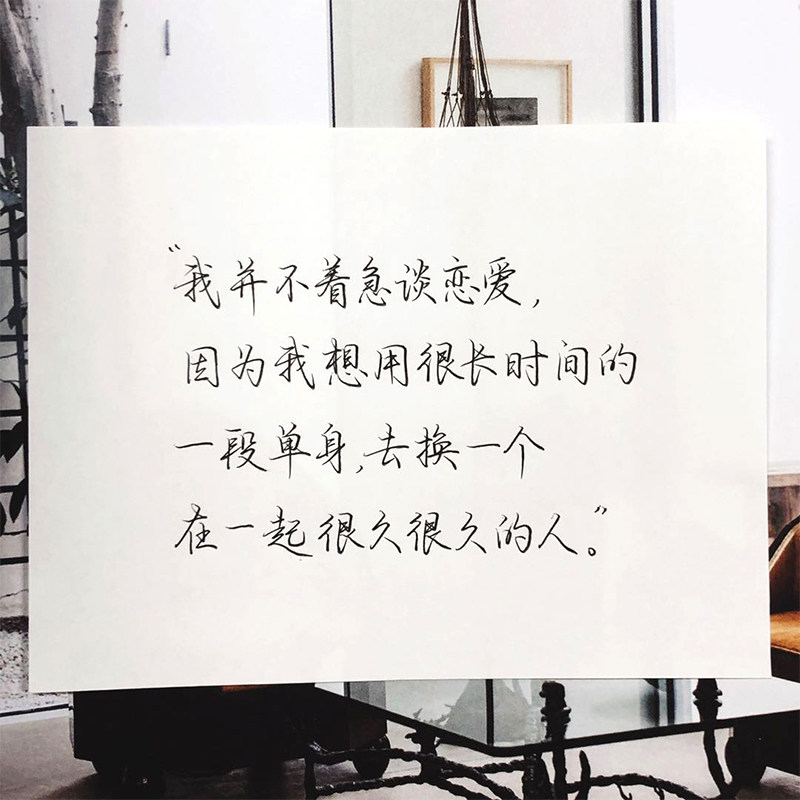 “我并不着急谈恋爱，
因为我想用很长时间的
一段单身，去换一个
在一起很久很久的人”。